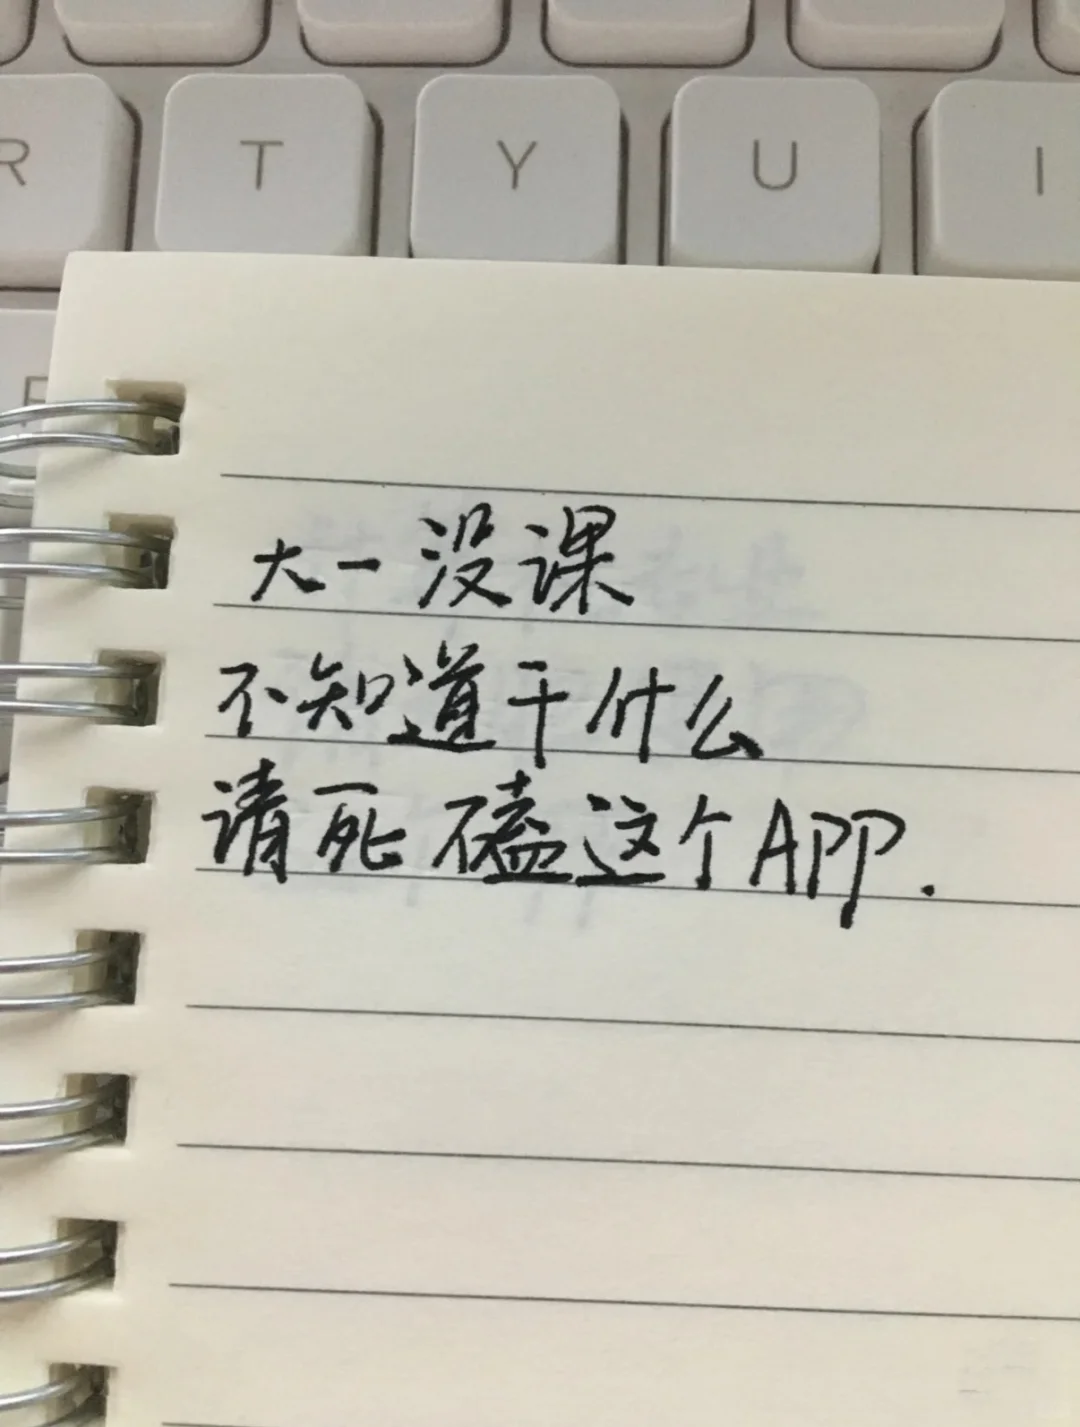 R T Y U I
F
大一没课
不知道干什么
请死磕这个APP.